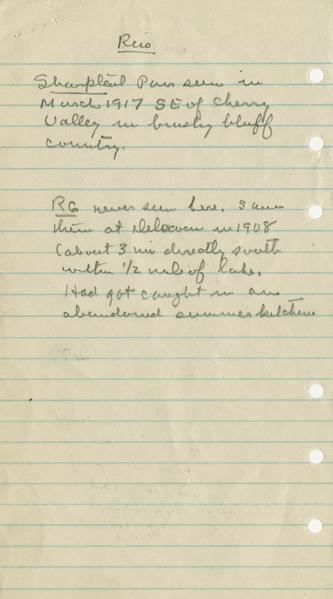 Rcio
Sharptail Pair seen in
March 1917 SE of Cherry
Valley in brushy bluff
country.
RG never seen here. Saw
them at Delavan in 1908
(about 3 mi directly south
within 1/2 mile of lake.
Had got caught in an
abandoned summer kitchen